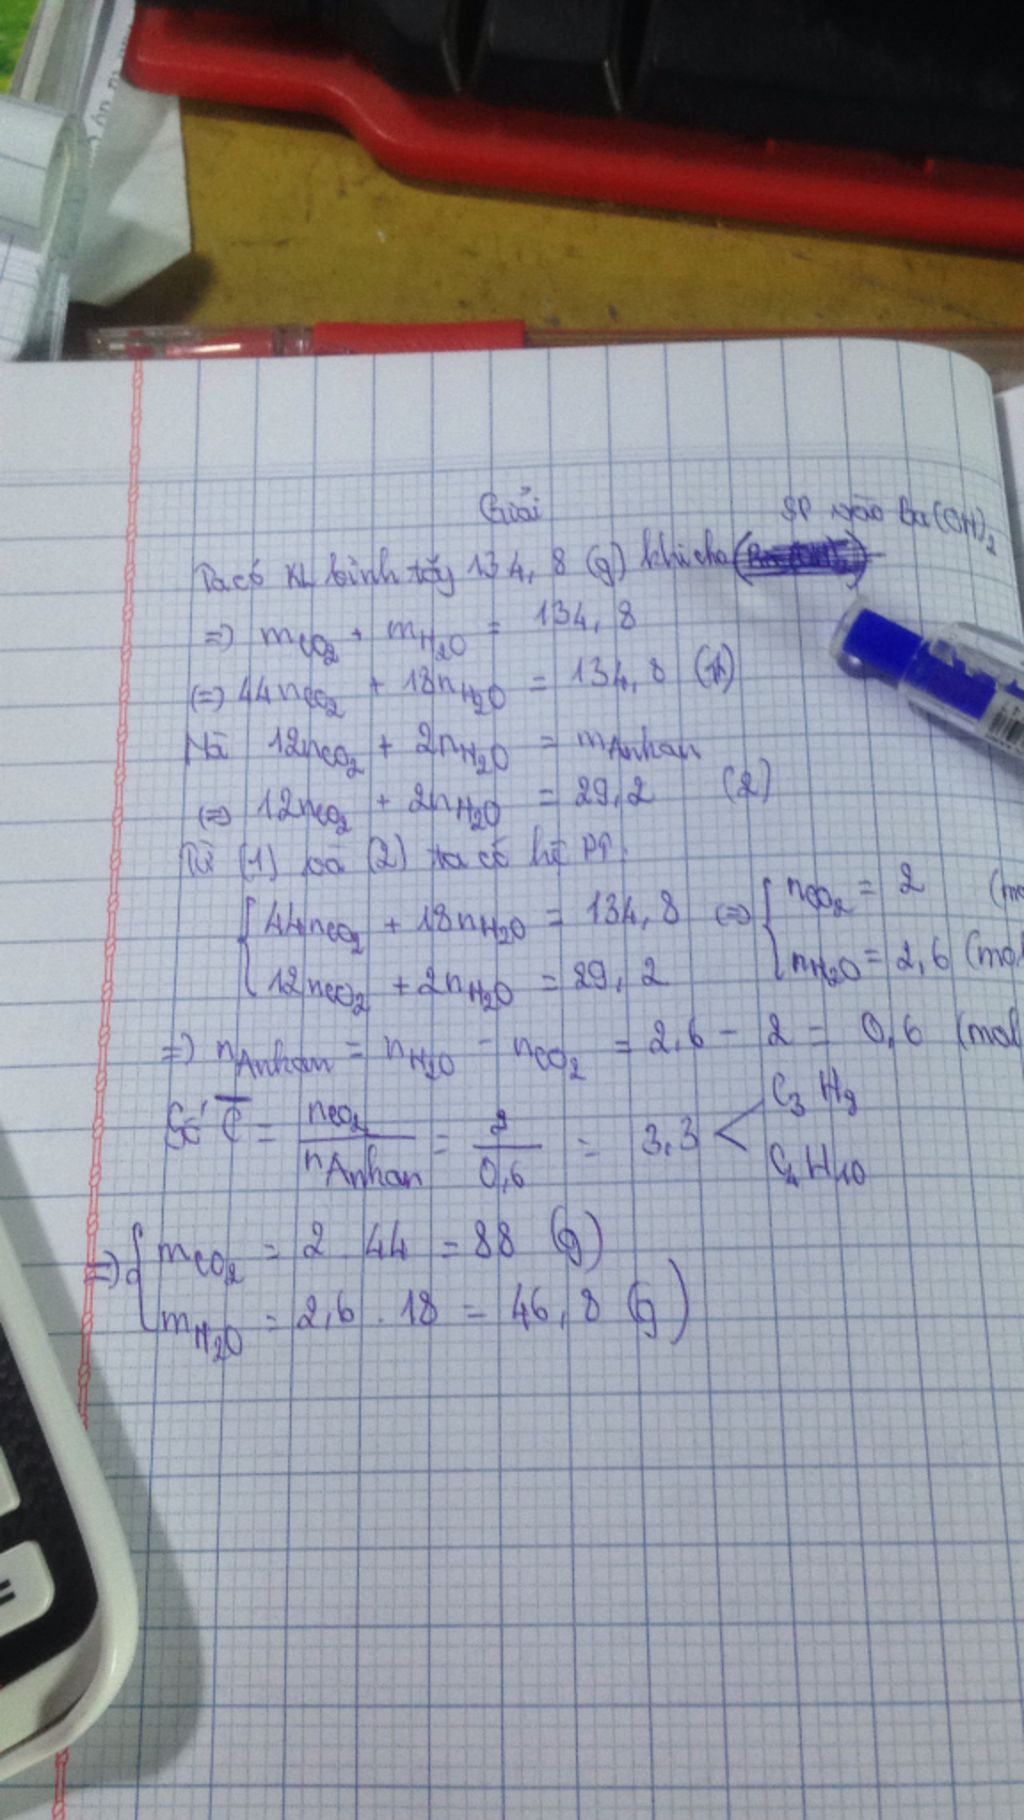 Giải
SP vào Ba(OH)₂
Ta có KL bình tăng 134,8 (g) khi cho
=> mCO₂ + mH₂O = 134,8
(=) 44nCO₂ + 18nH₂O = 134,8 (1)
Mà 12nCO₂ + 2nH₂O = mAnkan
(=) 12nCO₂ + 2nH₂O = 29,2 (2)
Từ (1) và (2) ta có hệ PT:
{ 44nCO₂ + 18nH₂O = 134,8 (=) { nCO₂ = 2 (mo
12nCO₂ + 2nH₂O = 29,2 nH₂O = 2,6 (mol
=> nAnkan = nH₂O - nCO₂ = 2,6 - 2 = 0,6 (mol
Số C̅ = nCO₂/nAnkan = 2/0,6 = 3,3 < C₃H₈
C₄H₁₀
=> { mCO₂ = 2 44 = 88 (g)
mH₂O = 2,6 . 18 = 46,8 (g)